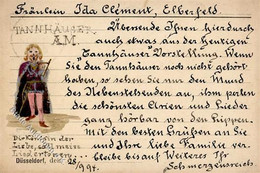 Fräulein Ida Clément, Elberfeld.
TANNHÄUSER
Übersende Ihnen hierdurch
auch etwas aus der heutigen
"Tannhäuser" Vorstellung. Wenn
Sie den Tannhäuser noch nicht gehört
haben, so sehen Sie nur den Mund
des Nebenstehenden an, ihm perlen
die schönsten Arien und Lieder
ganz hörbar von den Lippen.
Mit den besten Grüßen an Sie
und Ihre liebe Familie ver-
bleibe bis auf Weiteres Ihr
Schmerzensreich.
Die Königin der
Liebe, soll meine
Lied ertönen.
Düsseldorf, den 28/
1 94.